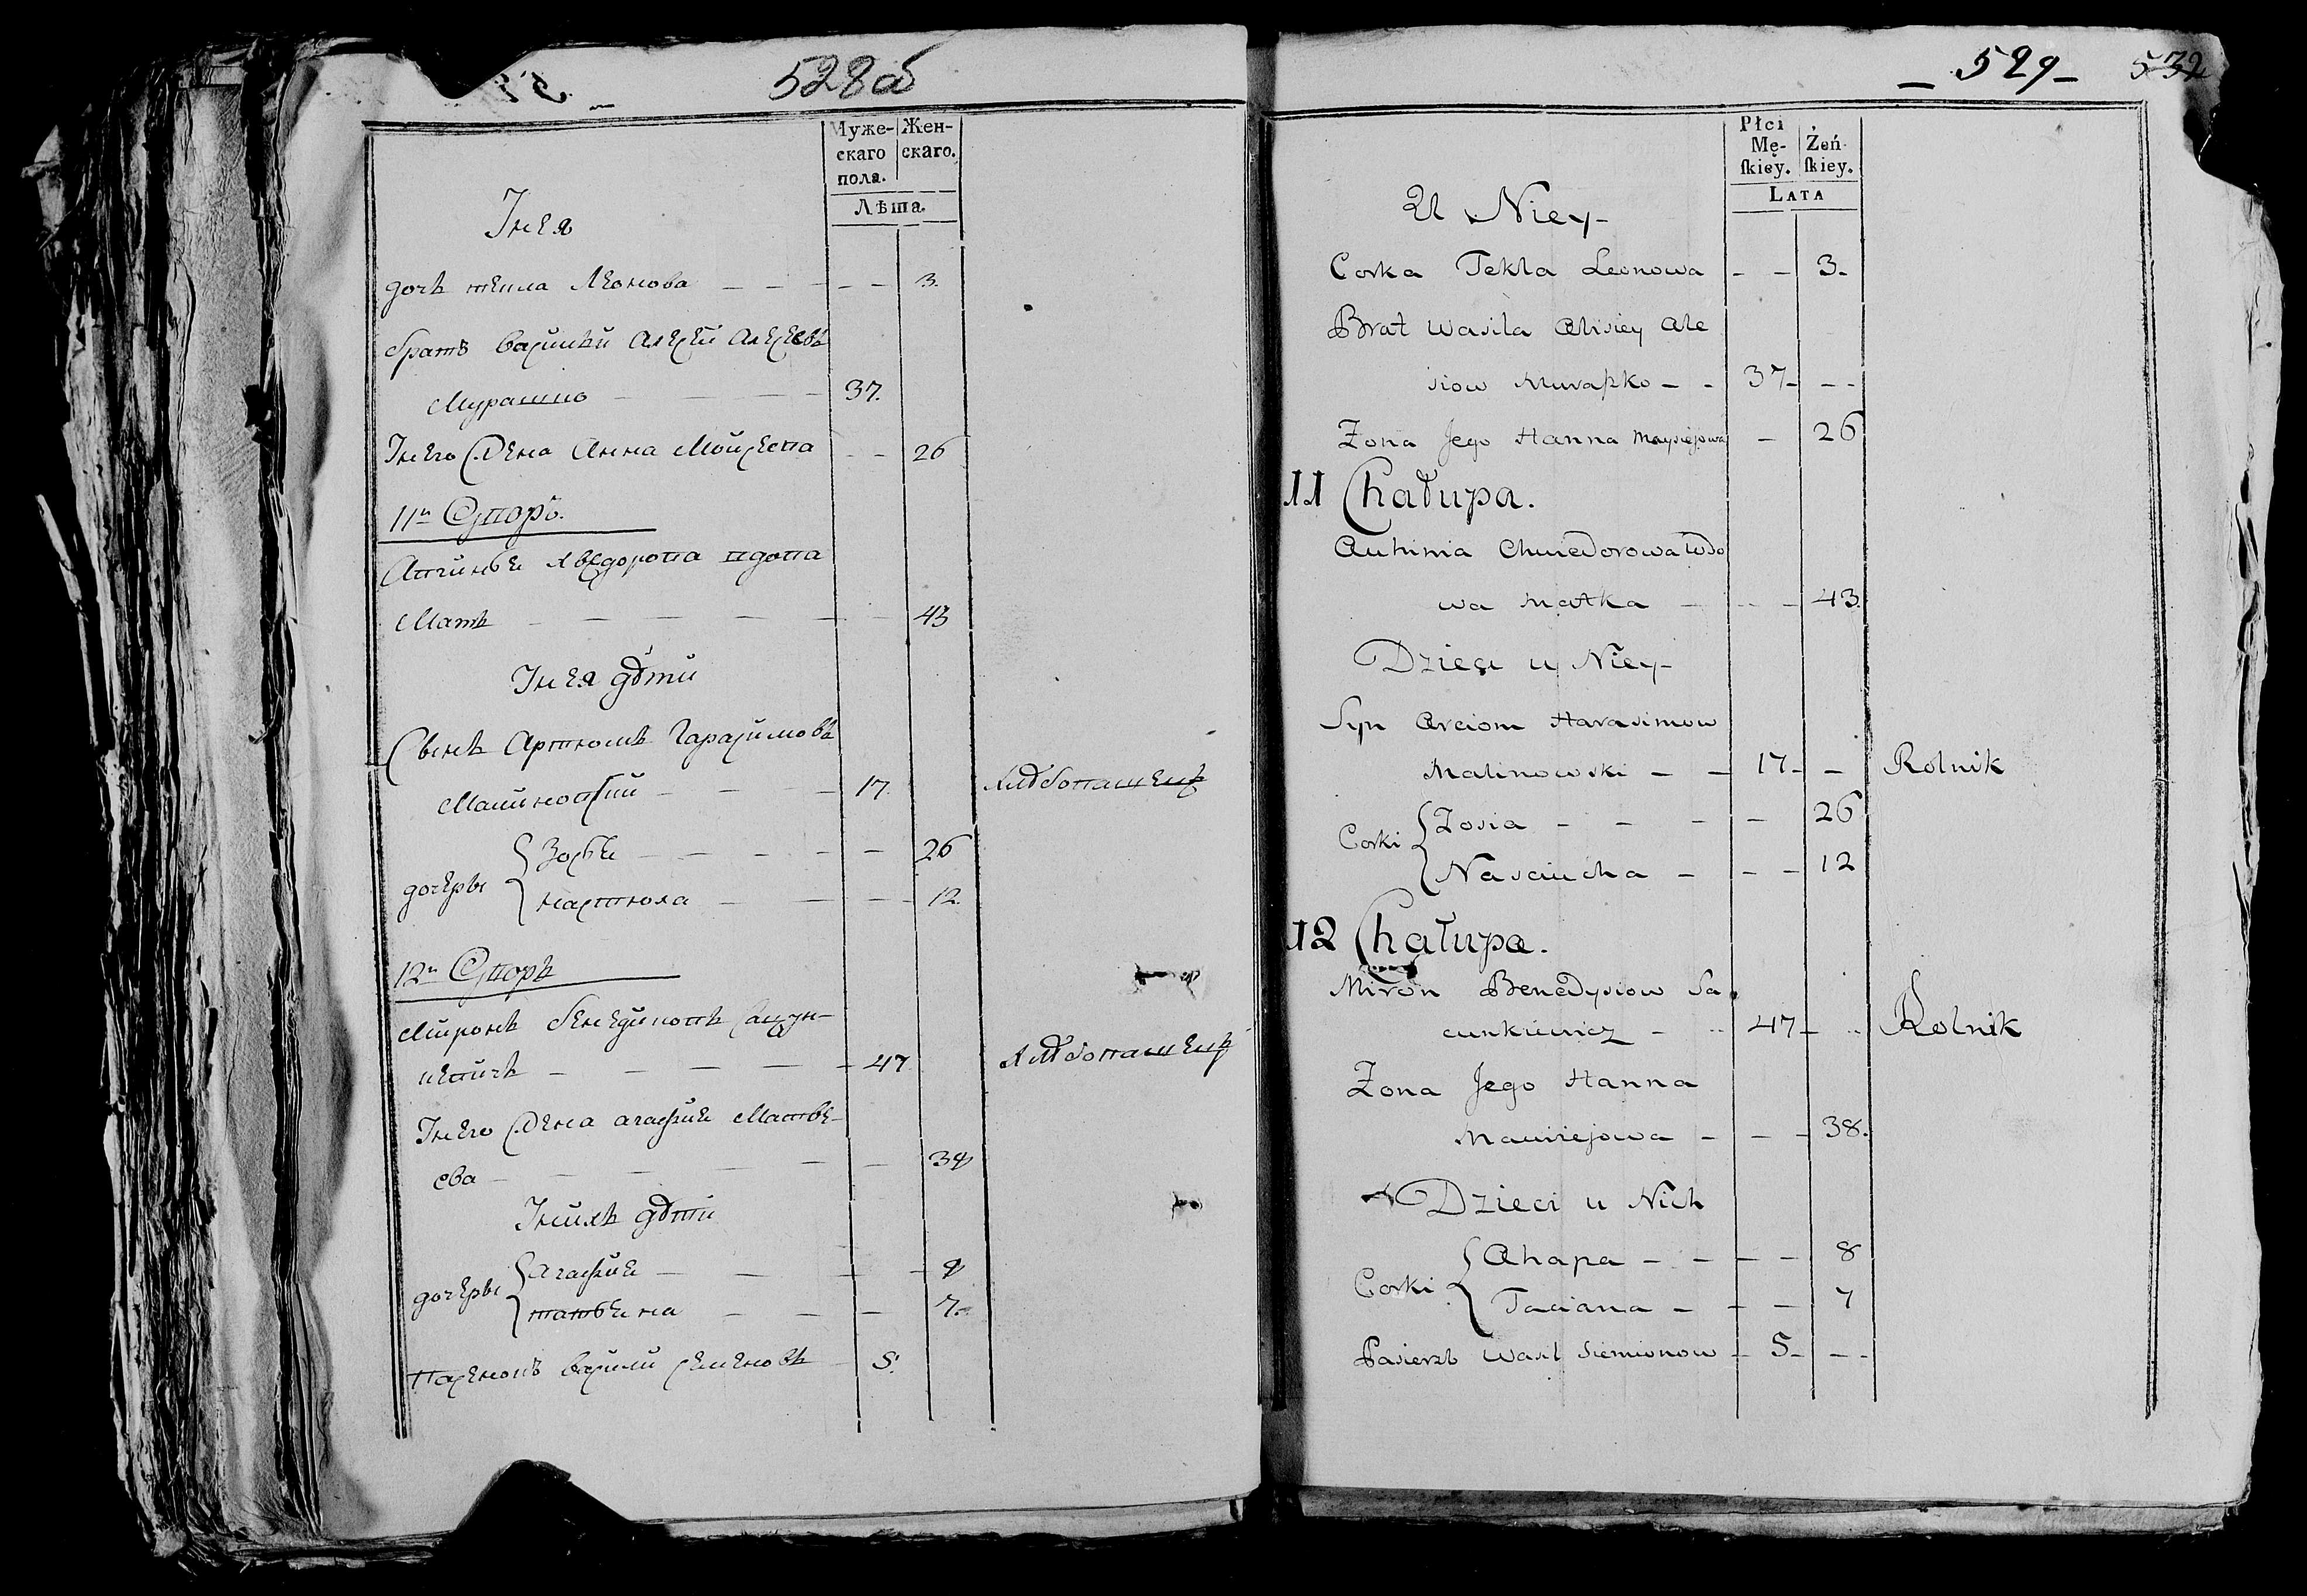 528об
Мужескаго пола.
Женскаго.
Лѣта.
У нея
дочь текла Леонова 3.
братъ василѣй Алесей Алесеевъ
Мурашко 37.
У него Жена Анна Мойсеева 26
11й Дворъ.
Хведорова вдова
Мать 43
У нея дѣти
Сынъ Артюомъ Гарасимовъ
Малиновский 17. хлѣбопашецъ
дочеры
Зосѣя 26
настюха 12.
12й Дворъ
Миронъ бенедиковъ Сацун-
кевичъ 47 хлѣбопашецъ
У него Жена агафия Матве-
ева 38
У нихъ дѣти
дочеры
агафия 8
татьяна 7.
пасенокъ васили семеновъ 5.
529 532
Płci Męſkiey.
Żeńſkiey.
LATA
U Niey
Corka Tekla Leonowa 3.
Brat Wasila Alisiey Ale
siow Muraszko 37
Zona Jego Hanna Moysiejowa 26
11 Chałupa.
Auhinia Chwedorowa Wdo
wa Matka 43.
Dzieci u Niey
Syn Arciom Harasimow
Malinowski 17 Rolnik
Corki
Zosia 26
Nasciucha 12
12 Chałupa.
Miron Benedysiow Sa
cunkiewicz 47 Rolnik
Zona Jego Hanna
Maciejowa 38.
Dzieci u Nich
Corki
Ahapa 8
Taciana 7
Pasierzb Wasil Siemionow 5